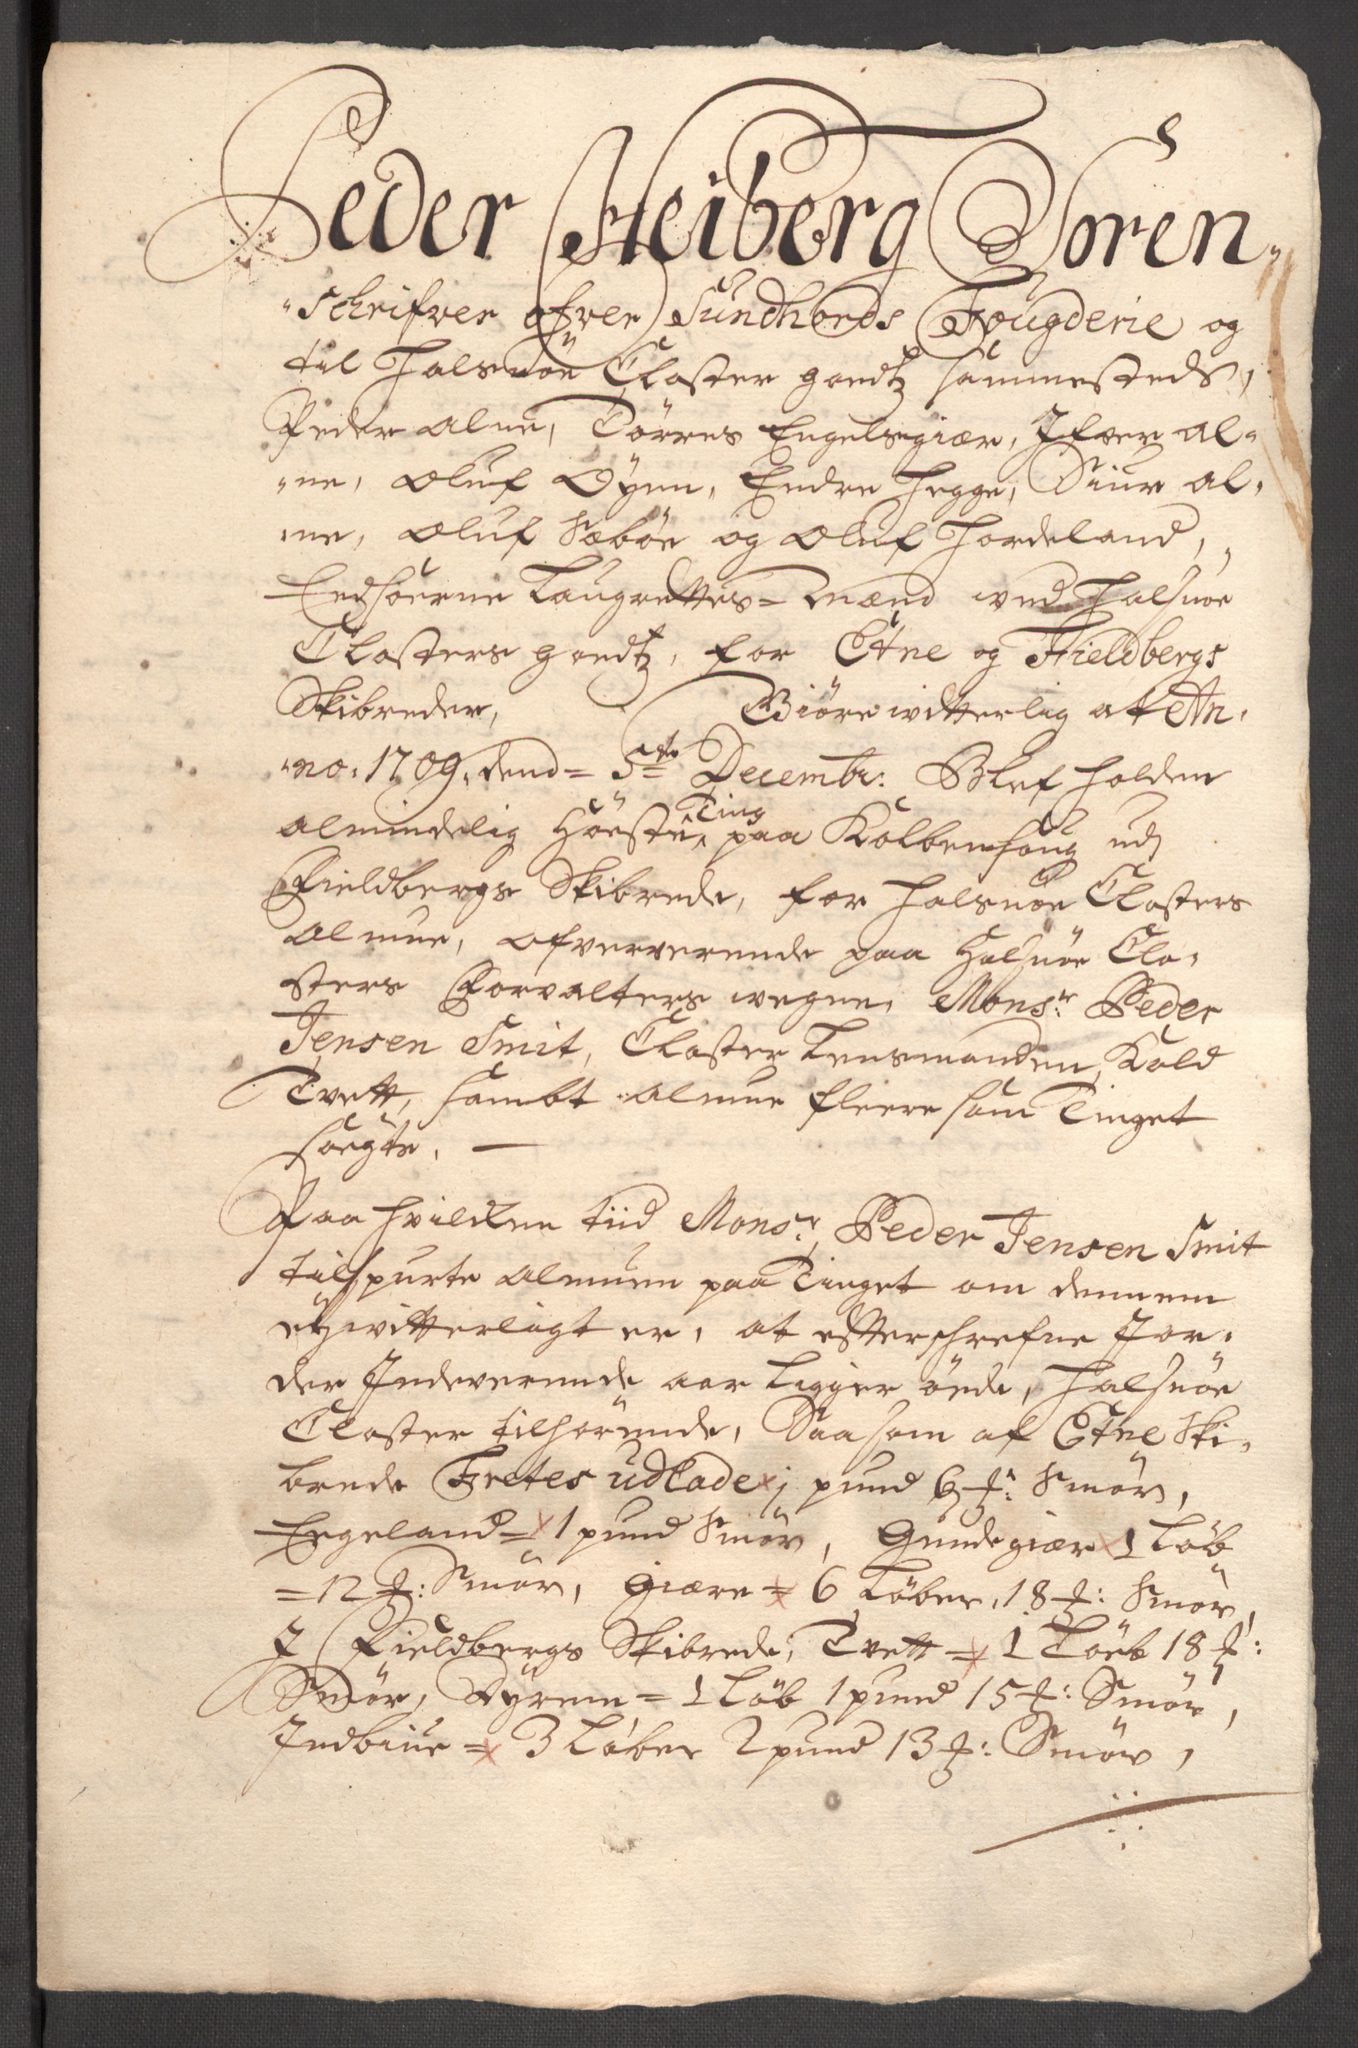 Peder Heiberg Soren-
-Schrifver ofver Sundhords Fougderie og
til Halsnöe Closter goedtz sammesteds,
Peder Alne, Törres Engelsgiær, Ifver Al-
-ne, Oluf Öyen, Endre Hegge, Siur Al-
-ne, Oluf Sæböe og Oluf Hordeland,
Eedsoerne Laugrettes-Mænd ved Halsnöe
Closters goedtz, for Etne og Fieldbergs
Skibreder, Giöre witterlig at An-
-no. 1709, dend = 5te Decembr: Blef holden
almindelig Höste Ting paa Kolbenshoug udj
Fieldbergs Skibrede, for Halsnöe Closters
Almue, ofververende paa Halsnöe Clo-
sters Forvalters wegne, Monsr: Peder
Jensen Smit, Closter Lensmanden, Kold
Tvett, sambt Almue fleere som Tinget
soegte. —
Paa hvilcken tiid Monsr: Peder Jensen Smit
tilspurte Almuen paa Tinget om dennem
ey witterligt er, at effterschrefne Jor-
der Indeverende aar Ligger öede, Halsnöe
Closter tilhörende, Saasom af Etne Ski-
brede Fretes udlade j pund 6 ℔: Smör,
Eegeland = 1 pund Smör, Gundegiær 1 Löb
= 12 ℔: Smör, Giære = 6 Löber, 18 ℔: Smör,
J Fieldbergs Skibrede, Tvett = 1 Löeb 18 ℔:
Smör, Dyrem = 1 Löb 1 pund 15 ℔: Smör,
Indbiue = 3 Löber 2 pund 13 ℔: Smör,